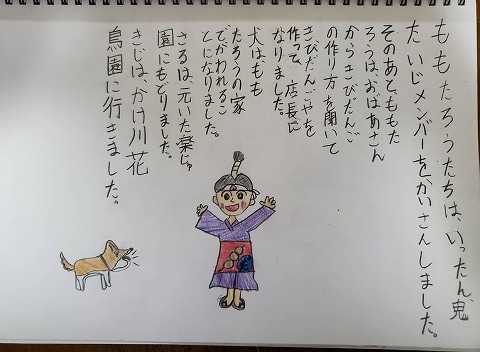 ももたろうたちは、いったん、鬼
たいじメンバーをかいさんしました。
そのあと、ももた
ろうは、おばあさん
からきびだんご
の作り方を聞いて
きびだんごやを
作って、店長に
なりました。
犬はもも
たろうの家
でかわれるこ
とになりました。
さるは、元いた楽じゅ
園にもどりました。
きじは、かけ川花
鳥園に行きました。